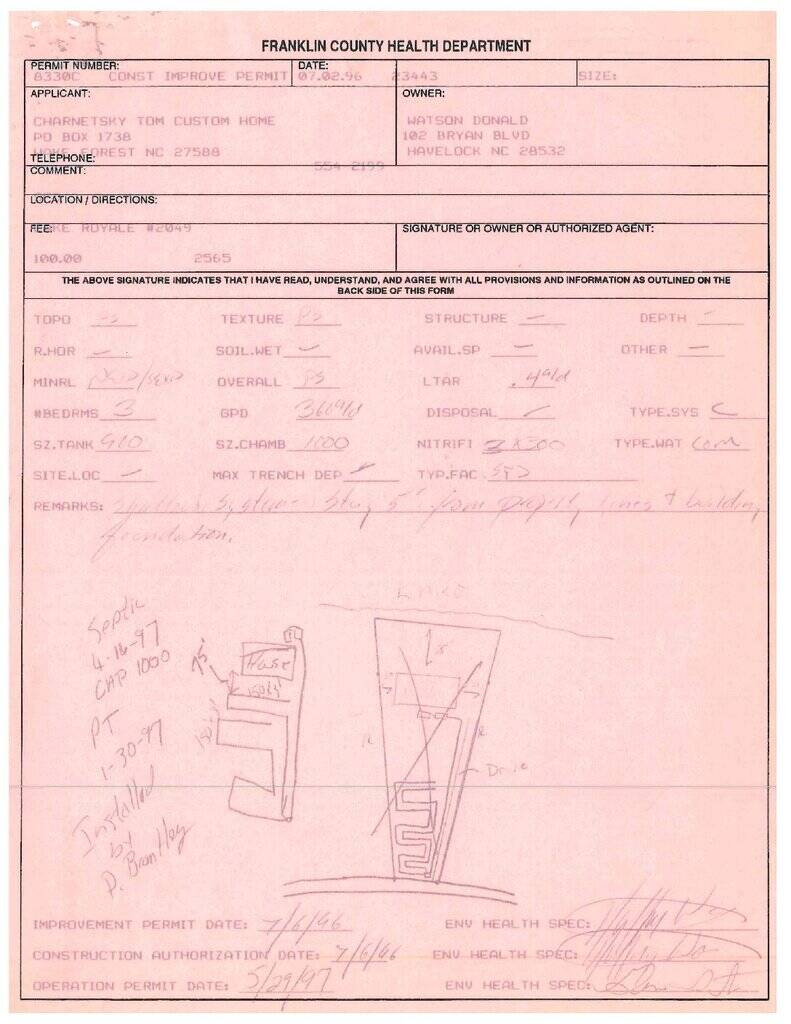 FRANKLIN COUNTY HEALTH DEPARTMENT
PERMIT NUMBER: DATE:
8330C CONST IMPROVE PERMIT 07.02.96 23443 SIZE:
APPLICANT: OWNER:
CHARNETSKY TOM CUSTOM HOME WATSON DONALD
PO BOX 1738 102 BRYAN BLVD
WAKE FOREST NC 27588 HAVELOCK NC 28532
TELEPHONE: 554-2199
COMMENT:
LOCATION / DIRECTIONS:
LAKE ROYALE #2049
FEE: SIGNATURE OR OWNER OR AUTHORIZED AGENT:
100.00 2565
THE ABOVE SIGNATURE INDICATES THAT I HAVE READ, UNDERSTAND, AND AGREE WITH ALL PROVISIONS AND INFORMATION AS OUTLINED ON THE
BACK SIDE OF THIS FORM
TOPO PS TEXTURE PS STRUCTURE — DEPTH —
R.HOR — SOIL.WET — AVAIL.SP — OTHER —
MINRL OVERALL PS LTAR .4 g/d
#BEDRMS 3 GPD 360 g/d DISPOSAL TYPE.SYS C
SZ.TANK 900 SZ.CHAMB 1000 NITRIFI 2 X300 TYPE.WAT Com
SITE.LOC — MAX TRENCH DEP TYP.FAC SFD
REMARKS: System - Stay 5' from property lines & building
foundation.
LAKE
Septic
4-16-97
CAP 1000
PT
1-30-97
Installed
by
P. Brantley
House
75'
150 ft
150 ft
Drive
IMPROVEMENT PERMIT DATE: 7/6/96 ENV HEALTH SPEC:
CONSTRUCTION AUTHORIZATION DATE: 7/6/96 ENV HEALTH SPEC:
OPERATION PERMIT DATE: 5/29/97 ENV HEALTH SPEC: